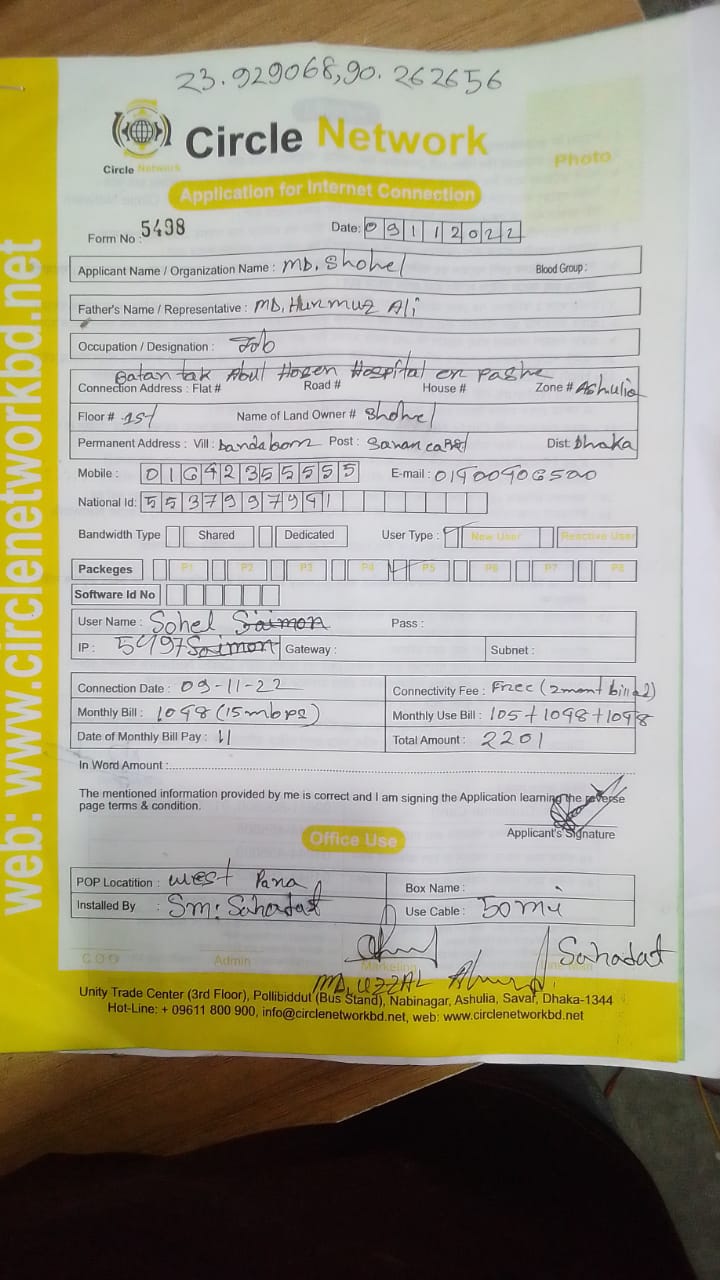 23.929068,90.262656
Circle Network
Circle Network
Photo
Application for Internet Connection
Form No : 5498
Date: 09112022
Applicant Name / Organization Name : MD. Shohel
Blood Group :
Father's Name / Representative : MD. Hurmuz Ali
Occupation / Designation : Job
Batan tak Abul Hosen Hospital er Pashe
Connection Address : Flat # Road # House # Zone # Ashulia
Floor # 1st Name of Land Owner # Shohel
Permanent Address : Vill : Post : Dist: Dhaka
Mobile : 01642355555 E-mail : 01400406500
National Id: 5537997941
Bandwidth Type Shared Dedicated User Type : New User Reactive User
Packeges P1 P2 P3 P4 P5 P6 P7 P8
Software Id No
User Name : Sohel Saimon Pass :
IP : 5497 Saimon Gateway : Subnet :
Connection Date : 09-11-22 Connectivity Fee : Free (2mont billad)
Monthly Bill : 1098 (15mbps) Monthly Use Bill : 105+1098+1098
Date of Monthly Bill Pay : 11 Total Amount : 2201
In Word Amount :
The mentioned information provided by me is correct and I am signing the Application learning the reverse
page terms & condition.
Applicant's Signature
Office Use
POP Locatition : West Para Box Name :
Installed By : Sm: Sahadat Use Cable : 50 mi
Sahadat
C O O Admin Marketing
MD. UZZAL
Unity Trade Center (3rd Floor), Pollibiddut (Bus Stand), Nabinagar, Ashulia, Savar, Dhaka-1344
Hot-Line: + 09611 800 900, info@circlenetworkbd.net, web: www.circlenetworkbd.net
web: www.circlenetworkbd.net